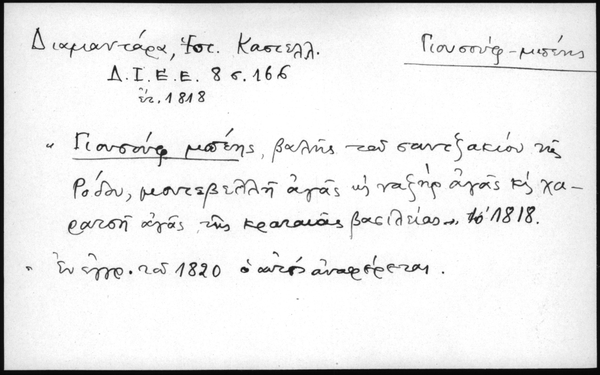 Διαμαντάρα, Ἱστ. Καστελλ.
Γιουσούφ-μπέης
Δ.Ι.Ε.Ε. 8 σ. 166
ἔτ. 1818
"Γιουσούφ μπέης, βαλῆς τοῦ σαντζακίου τῆς
Ρόδου, μουτεβελλῆ ἀγᾶς κ' ναζὴρ ἀγᾶς κ' χα-
ρατσῆ ἀγᾶς, τῆς κραταιᾶς βασιλείας", τὸ 1818.
" Ἐν ἐγγρ. τοῦ 1820 ὁ αὐτὸς ἀναφέρεται.